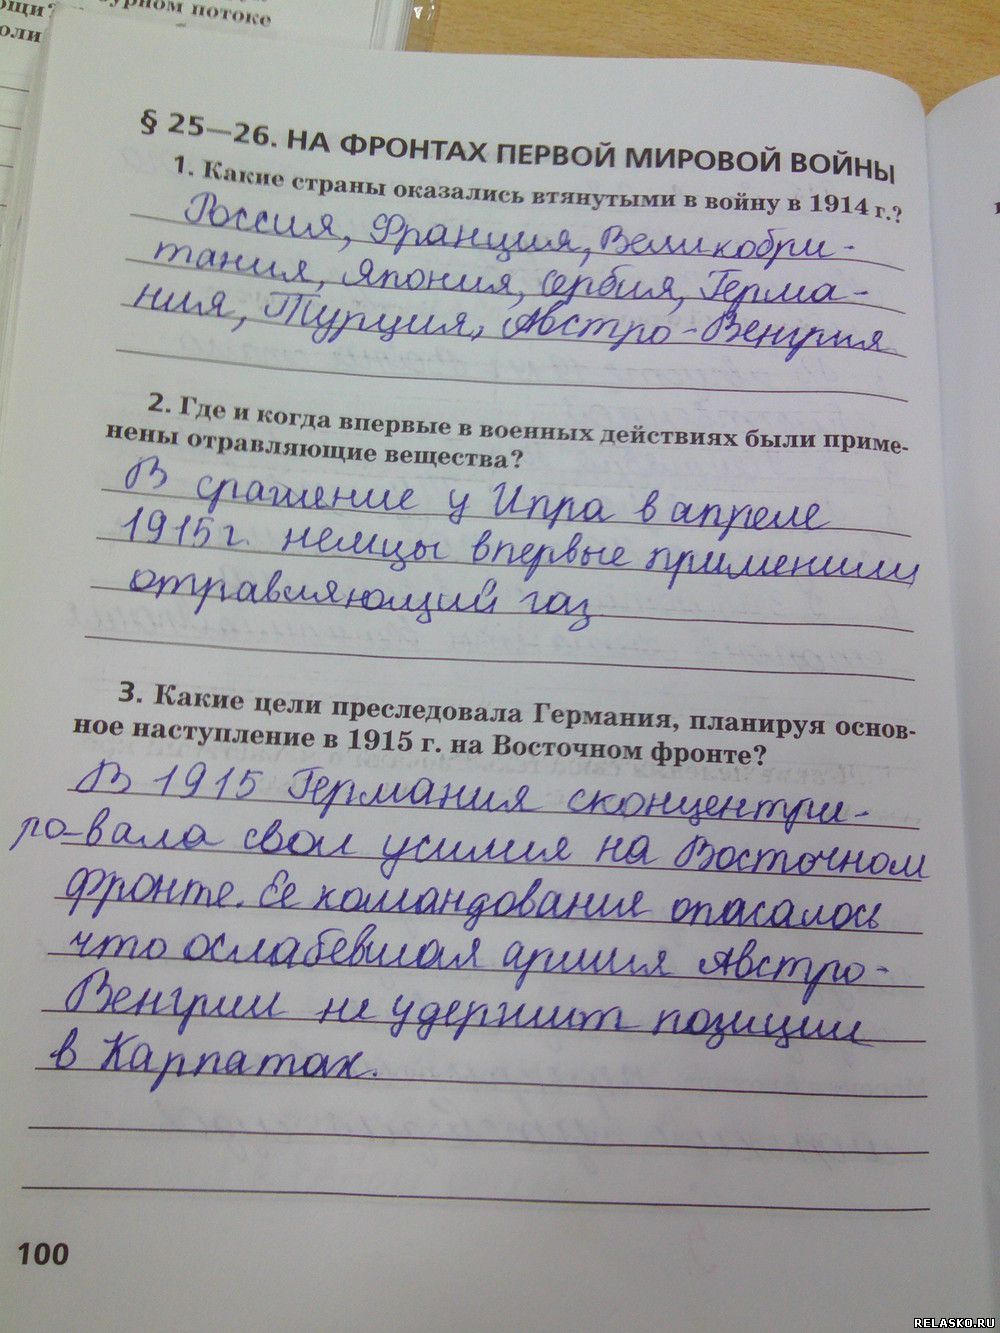 ощи?
урном потоке
оли
§ 25—26. НА ФРОНТАХ ПЕРВОЙ МИРОВОЙ ВОЙНЫ
1. Какие страны оказались втянутыми в войну в 1914 г.?
Россия, Франция, Великобри-
тания, Япония, Сербия, Герма-
ния, Турция, Австро-Венгрия
2. Где и когда впервые в военных действиях были приме-
нены отравляющие вещества?
В сражение у Ипра в апреле
1915 г. немцы впервые применили
отравляющий газ
3. Какие цели преследовала Германия, планируя основ-
ное наступление в 1915 г. на Восточном фронте?
В 1915 Германия сконцентри-
ро-вала свои усилия на Восточном
фронте. Ее командование опасалось
что ослабевшая армия Австро-
Венгрии не удержит позиции
в Карпатах.
100
RELASKO.RU